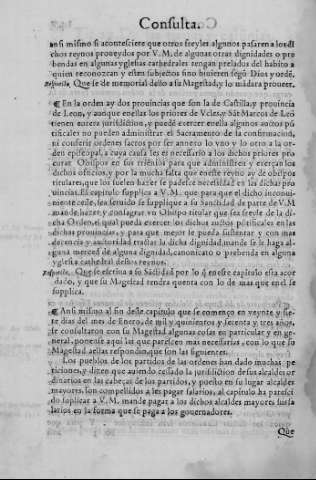 Consulta.
ansi mismo si acontesciere que otros freyles algunos pasaren a los di
chos reynos proueydos por V.M. de algunas otras dignidades o pre
bendas en algunas yglesias cathedrales tengan prelados del habito a
quien reconozcan y esten subjectos sino huuieren segū Dios y ordē.
Respuesta. Que se de memorial dello a su Magestad, y lo mādara proueer.
¶ En la orden ay dos prouincias que son la de Castilla, y prouincia
de Leon, y aunque en ellas los priores de Vcles, y Sāt Marcos de Leō
tienen entera jurisdiction, y puedē exercer en ella algunos auctos pō
tificales no pueden administrar el Sacramento de la confirmacion,
ni conferir ordenes sacros por ser annexo lo vno y lo otro a la or
den episcopal, a cuya causa les es necessario a los dichos priores pro
curar Obispos en sus trienios para que administren y exerçan los
dichos officios, y por la mucha falta que en este reyno ay de obispos
titulares, que los suelen hazer se padesce necessidad en las dichas pro
uincias. El capitulo supplica a V.M. que para que el dicho inconui
niente cesse, sea seruido se supplique a su Sanctidad de parte de V.M.
mande hazer, y consagrar vn Obispo titular que sea freyle de la di
cha Orden, el qual pueda exercer los dichos auctos pōtificales en las
dichas prouincias, y para que mejor se pueda sustentar y con mas
decencia y auctoridad tractar la dicha dignidad, mande se le haga al
guna merced de alguna dignidad, canonicato o prebenda en alguna
yglesia cathedral destos reynos.
Respuesta. Que se escriua a su Sāctidad por lo q̄ en este capitulo esta acor
dado, y que su Magestad tendra quenta con lo de mas que en el se
supplica.
¶ Ansi mismo al fin deste capitulo que se començo en veynte y sie
te dias del mes de Enero, de mil y quinientos y setenta y tres años,
se consultaron con su Magestad algunas cosas en particular y en ge
neral, ponense aqui las que parescen mas necessarias, con lo que su
Magestad a ellas respondio, que son las siguientes.
Los pueblos de los partidos de las ordenes han dado muchas pe
ticiones, y dizen que auiendo cessado la jurisdiction de sus alcaldes or
dinarios en las cabeças de los partidos, y puesto en su lugar alcaldes
mayores, son compellidos a les pagar salarios, al capitulo ha paresci
do suplicar a V.M. mande pagar a los dichos alcaldes mayores sus sa
larios en la forma que se paga a los gouernadores.
Que